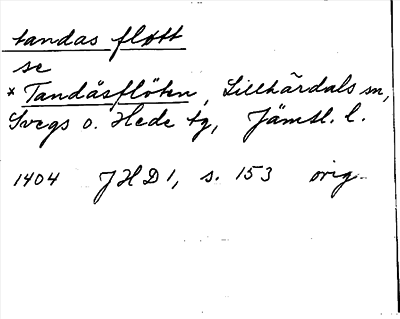 tandas fløtt
se
* Tandåsflöten, Lillhärdals sn,
Svegs o. Hede tg, Jämtl. l.
1404 JHD 1, s. 153 orig.